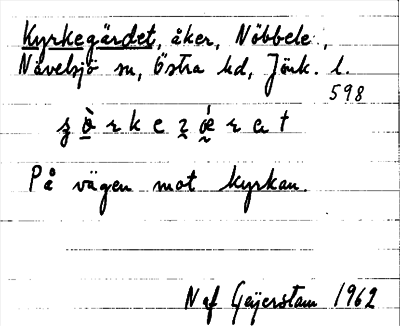 Kyrkegärdet, åker, Nöbbele,
Nävelsjö sn, Östra hd, Jönk. l.
598
På vägen mot kyrkan.
N af Geijerstam 1962